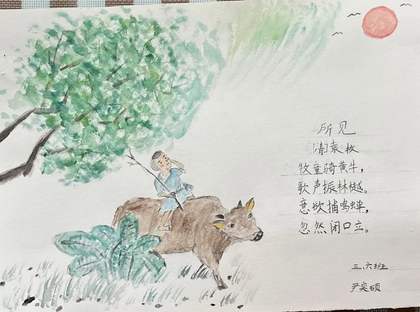 所见
清 袁枚
牧童骑黄牛，
歌声振林樾。
意欲捕鸣蝉，
忽然闭口立。
三、六班
尹奕硕